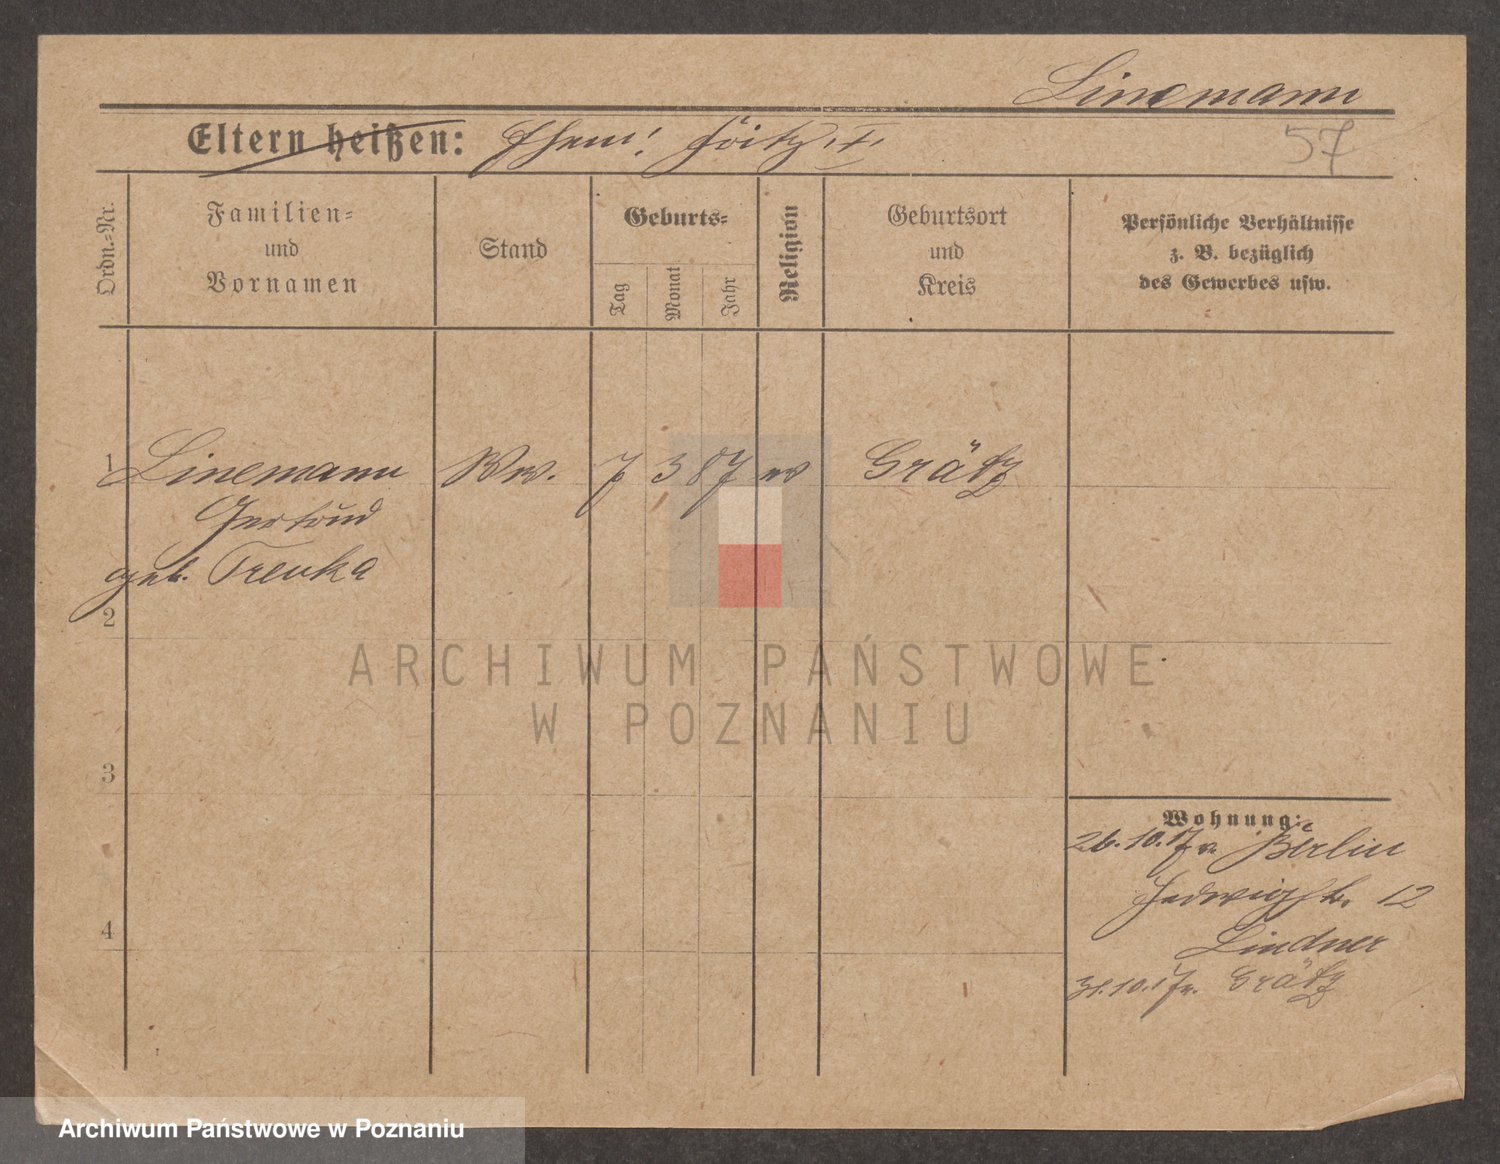 Linemann
Eltern heißen: Ehem: Fritz, †.
57
Ordn.-Nr.
Familien-
und
Vornamen
Stand
Geburts-
Tag
Monat
Jahr
Religion
Geburtsort
und
Kreis
Persönliche Verhältnisse
z. B. bezüglich
des Gewerbes usw.
1 Linemann Ww. 7 3 87 ev Grätz
Gertrud
geb. Trenka
2
3
4
Wohnung:
26.10.17 v. Berlin
Hedwigstr. 12
Lindner
31.10.17 n. Grätz
ARCHIWUM PAŃSTWOWE
W POZNANIU
Archiwum Państwowe w Poznaniu